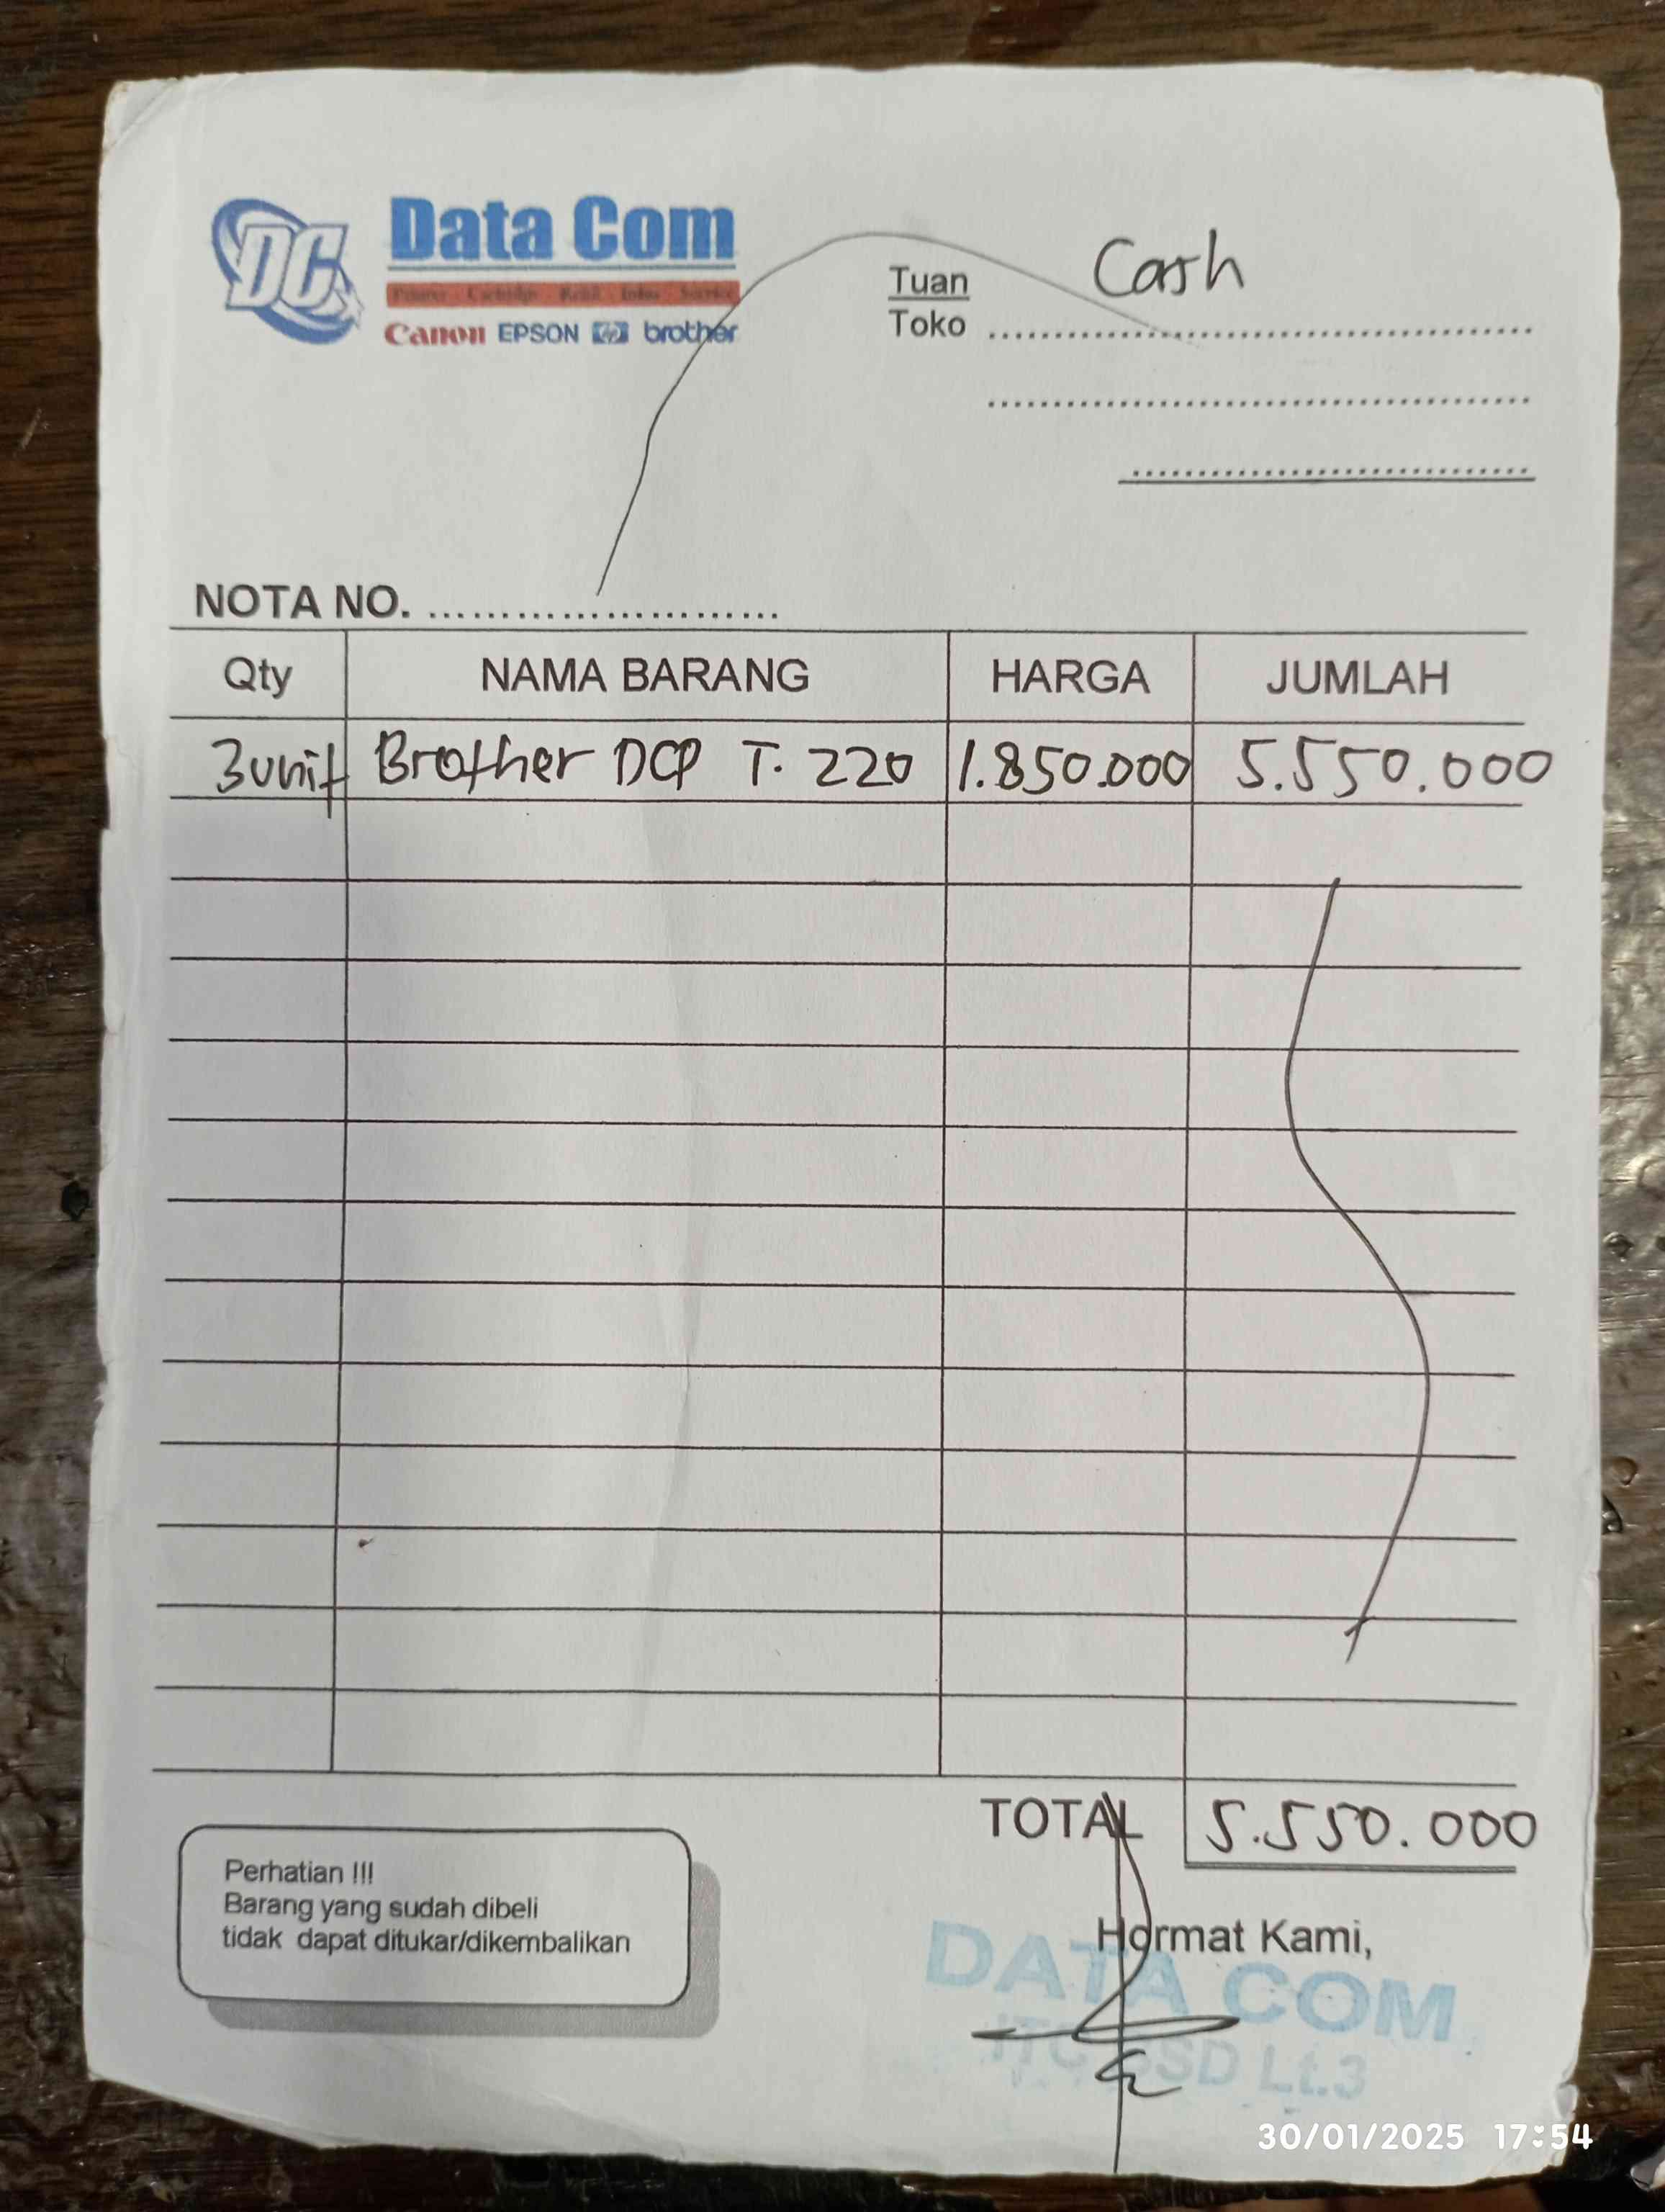 DC
Data Com
Printer Cartridge Refill Infus Service
Canon EPSON hp brother
Tuan Cash
Toko
NOTA NO.
Qty NAMA BARANG HARGA JUMLAH
3unit Brother DCP T. 220 1.850.000 5.550.000
TOTAL 5.550.000
Perhatian !!!
Barang yang sudah dibeli
tidak dapat ditukar/dikembalikan
Hormat Kami,
DATA COM
ITC BSD Lt.3
30/01/2025 17:54